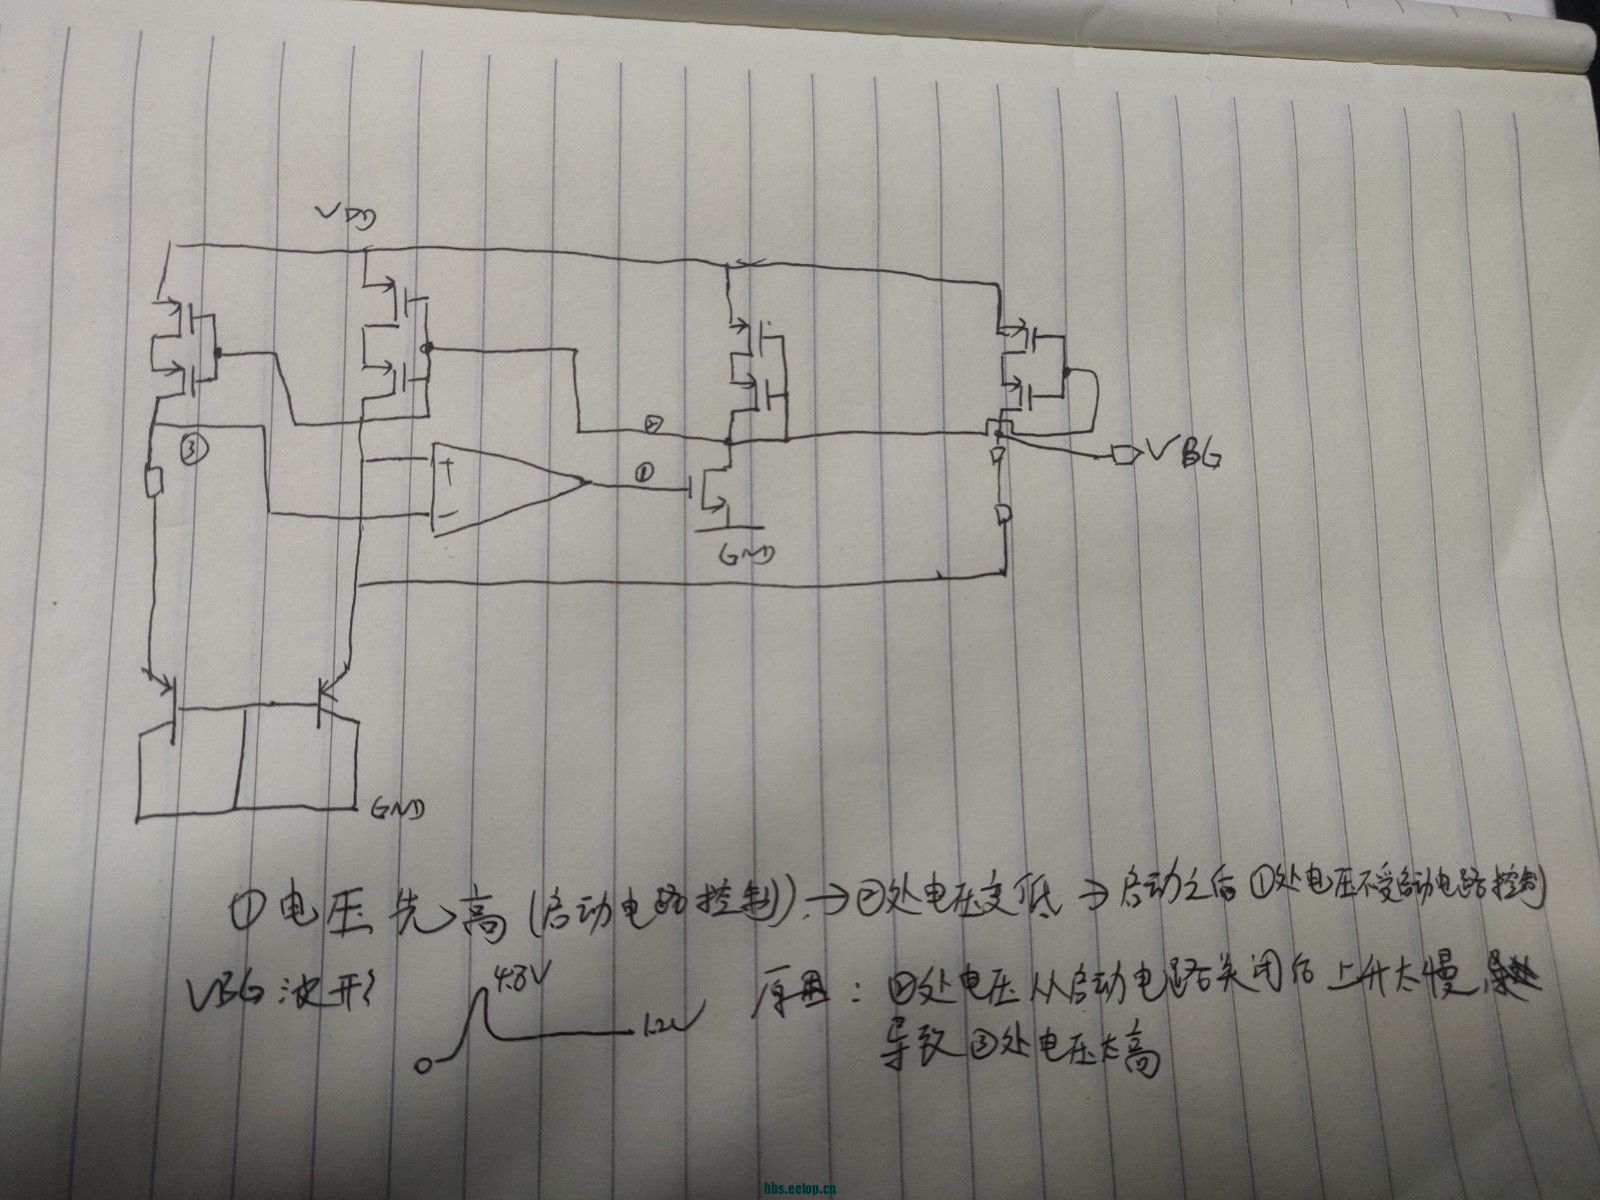 VDD
③
②
①
+
-
VBG
GND
GND
①电压先高(启动电路控制)→②处电压变低→启动之后①处电压不受启动电路控制)
VBG波形
4.8V
1.2V
原因：②处电压从启动电路关闭后上升太慢，
导致③处电压太高
bbs.eetop.cn